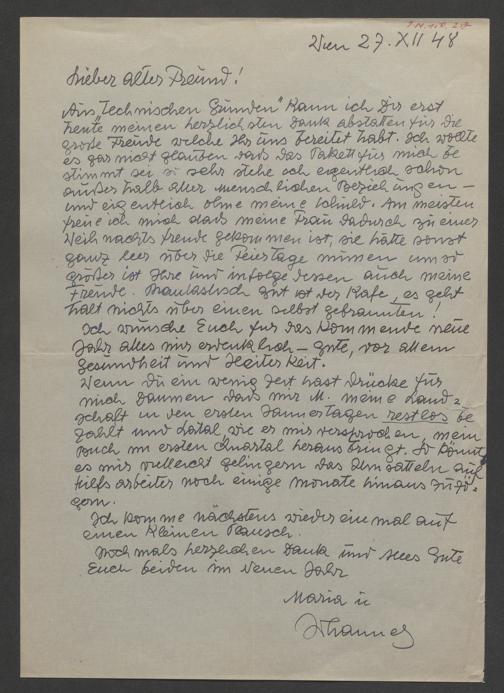 Wien 27. XII 48
Lieber alter Freund!
Aus "technischen Gründen" kann ich Dir erst
heute meinen herzlichsten Dank abstatten für die
große Freude welche Ihr uns bereitet habt. Ich wollte
es gar nicht glauben dass das Paket für mich be
stimmt sei so sehr stehe ich eigentlich schon
außerhalb aller menschlichen Beziehungen –
und eigentlich ohne meine Schuld. Am meisten
freue ich mich dass meine Frau dadurch zu einer
Weihnachtsfreude gekommen ist, sie hätte sonst
ganz leer über die Feiertage müssen umso
größer ist Ihre und infolge dessen auch meine
Freude. Phantastisch gut ist der Kafe, es geht
halt nichts über einen selbst gebrannten!
Ich wünsche Euch für das kommende neue
Jahr alles nur erdenklich – gute, vor allem
Gesundheit und Heiterkeit.
Wenn Du ein wenig Zeit hast drücke für
mich Daumen dass mir M. meine Land=
schaft in den ersten Jännertagen restlos be
zahlt und wie er mir versprochen, mein
Buch im ersten Quartal herausbringt. So könnte
es mir vielleicht gelingen das Umsatteln auf
Hilfsarbeiter noch einige Monate hinaus zu zö=
gern.
Ich komme nächstens wieder einmal auf
einen kleinen Plausch.
Nochmals herzlichen Dank und alles Gute
Euch beiden im Neuen Jahr
Maria u
Johannes